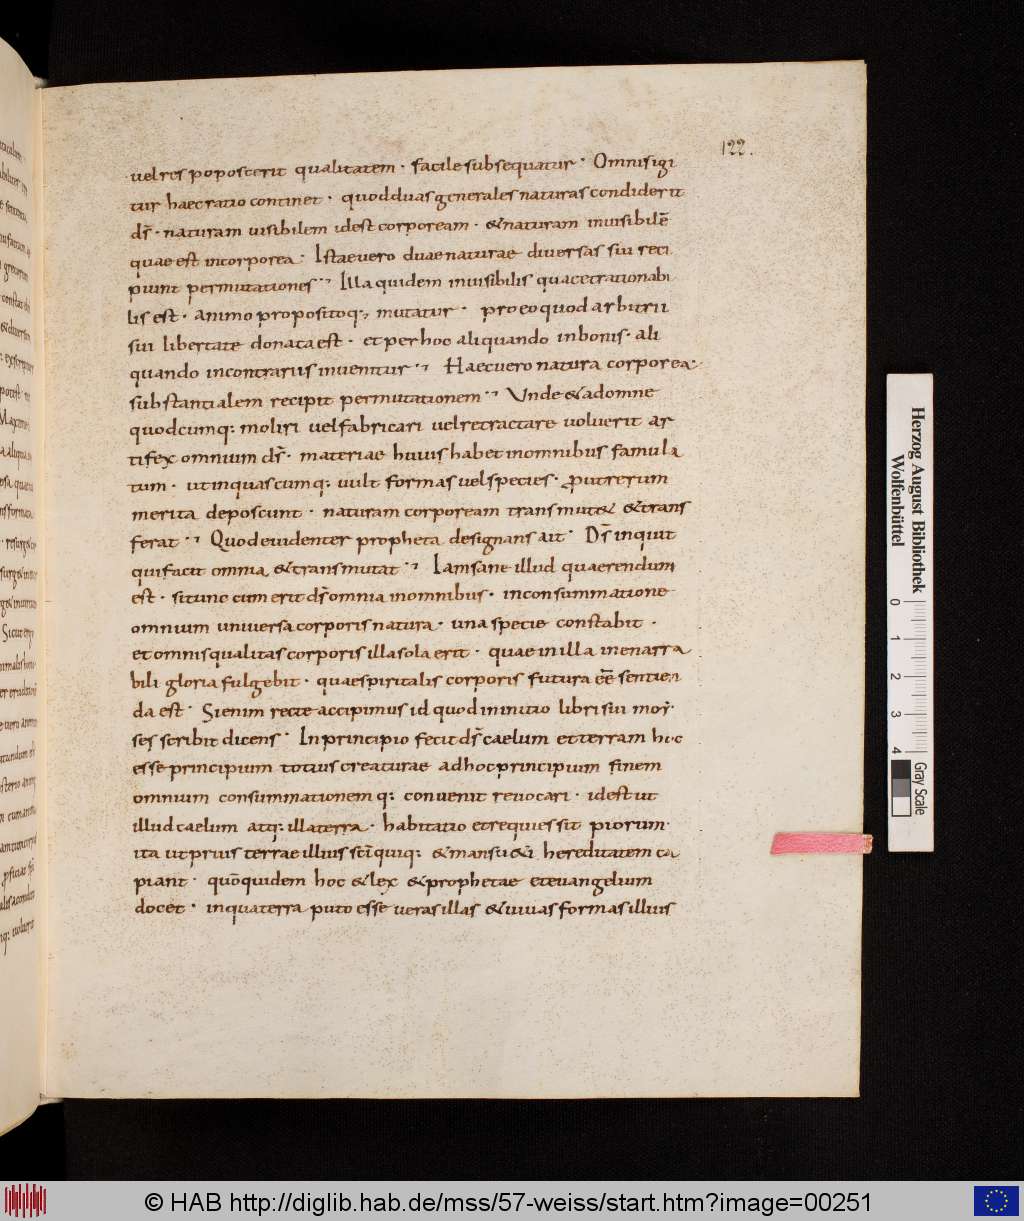 122.
uel res poposcerit qualitatem · facile subsequatur · Omnis igi
tur haec ratio continet · quod duas generales naturas condiderit
dS · naturam uisibilem idest corpoream · & naturam inuisibilē
quae est incorporea · Istae uero duae naturae diuersas sui reci
piunt permutationes · Illa quidem inuisibilis quae et rationabi
lis est · animo propositoq; mutatur · pro eo quod arbitrii
sui libertate donata est · et per hoc aliquando in bonis · ali
quando in contrariis inuenitur · Haec uero natura corporea ·
substantialem recipit permutationem · Unde & ad omne
quodcumq; moliri uel fabricari uel retractare uoluerit ar
tifex omnium dS · materiae huius habet in omnibus famula
tum · ut in quascumq; uult formas uel species · prout rerum
merita deposcunt · naturam corpoream transmut& & trans
ferat · Quod euidenter propheta designans ait · DS inquit
qui facit omnia & transmutat · Iam sane illud quaerendum
est · si tunc cum erit dS omnia in omnibus · in consummatione
omnium uniuersa corporis natura · una specie constabit ·
et omnis qualitas corporis illa sola erit · quae in illa inenarra
bili gloria fulgebit · quae spiritalis corporis futura eē sentien
da est · Si enim recte accipimus id quod in initio libri sui moy
ses scribit dicens · In principio fecit dS caelum et terram hoc
esse principium totius creaturae ad hoc principium finem
omnium consummationemq; conuenit reuocari · idest ut
illud caelum atq; illa terra · habitatio et requies sit piorum ·
ita ut prius terrae illius sci quiq; & mansu&i hereditatem ca
piant · quō quidem hoc & lex & prophetae et euangelium
docet · in qua terra puto esse ueras illas & uiuas formas illius
Herzog August Bibliothek
Wolfenbüttel
0 1 2 3 4
Gray Scale
© HAB http://diglib.hab.de/mss/57-weiss/start.htm?image=00251